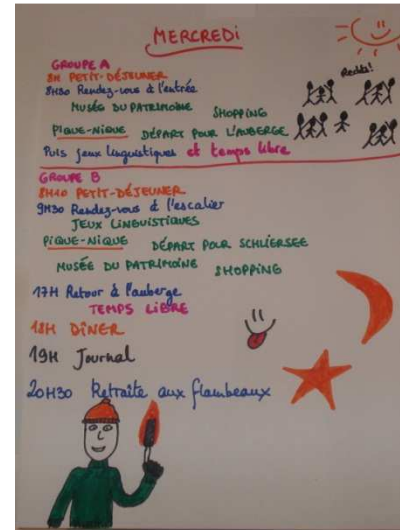 MERCREDI
GROUPE A
8H PETIT-DÉJEUNER
8H30 Rendez-vous à l'entrée
MUSÉE DU PATRIMOINE SHOPPING
PIQUE-NIQUE DÉPART POUR L'AUBERGE
Puis jeux linguistiques et temps libre
GROUPE B
8H40 PETIT-DÉJEUNER
9H30 Rendez-vous à l'escalier
JEUX LINGUISTIQUES
PIQUE-NIQUE DÉPART POUR SCHLIERSEE
MUSÉE DU PATRIMOINE SHOPPING
17H Retour à l'auberge
TEMPS LIBRE
18H DÎNER
19H Journal
20H30 Retraite aux flambeaux